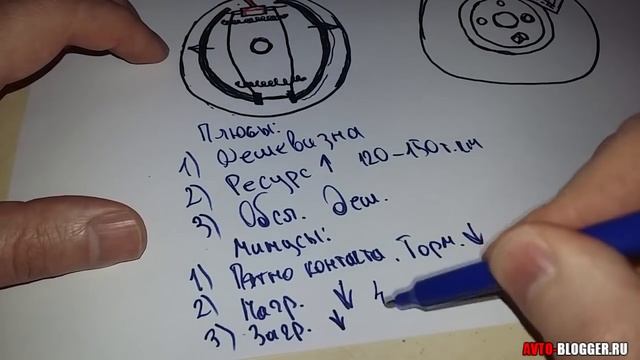 Плюсы:
1) Дешевизна
2) Ресурс ↑ 120-150 т.км
3) Обсл. деш.
Минусы:
1) Пятно контакта. Торм. ↓
2) Нагр. ↓ 4
3) Загр. ↓
AVTO-BLOGGER.RU